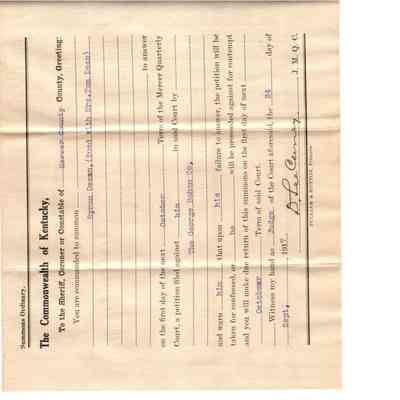 Summons Ordinary.
The Commonwealth of Kentucky,
To the Sheriff, Coroner or Constable of Mercer County County, Greeting:
You are commanded to summon
Byron Dean (Pood with Mrs. Tom Dean)
to answer
on the first day of the next October Term of the Mercer Quarterly
Court, a petition filed against him in said Court by
The George Bohon Co.
and warn him that upon his failure to answer, the petition will be
taken for confessed, or he will be proceeded against for contempt
and you will make due return of this summons on the first day of next
October Term of said Court.
Witness my hand as Judge of the Court aforesaid, the 24 day of
Sept. 1917
J. M. Q. C.